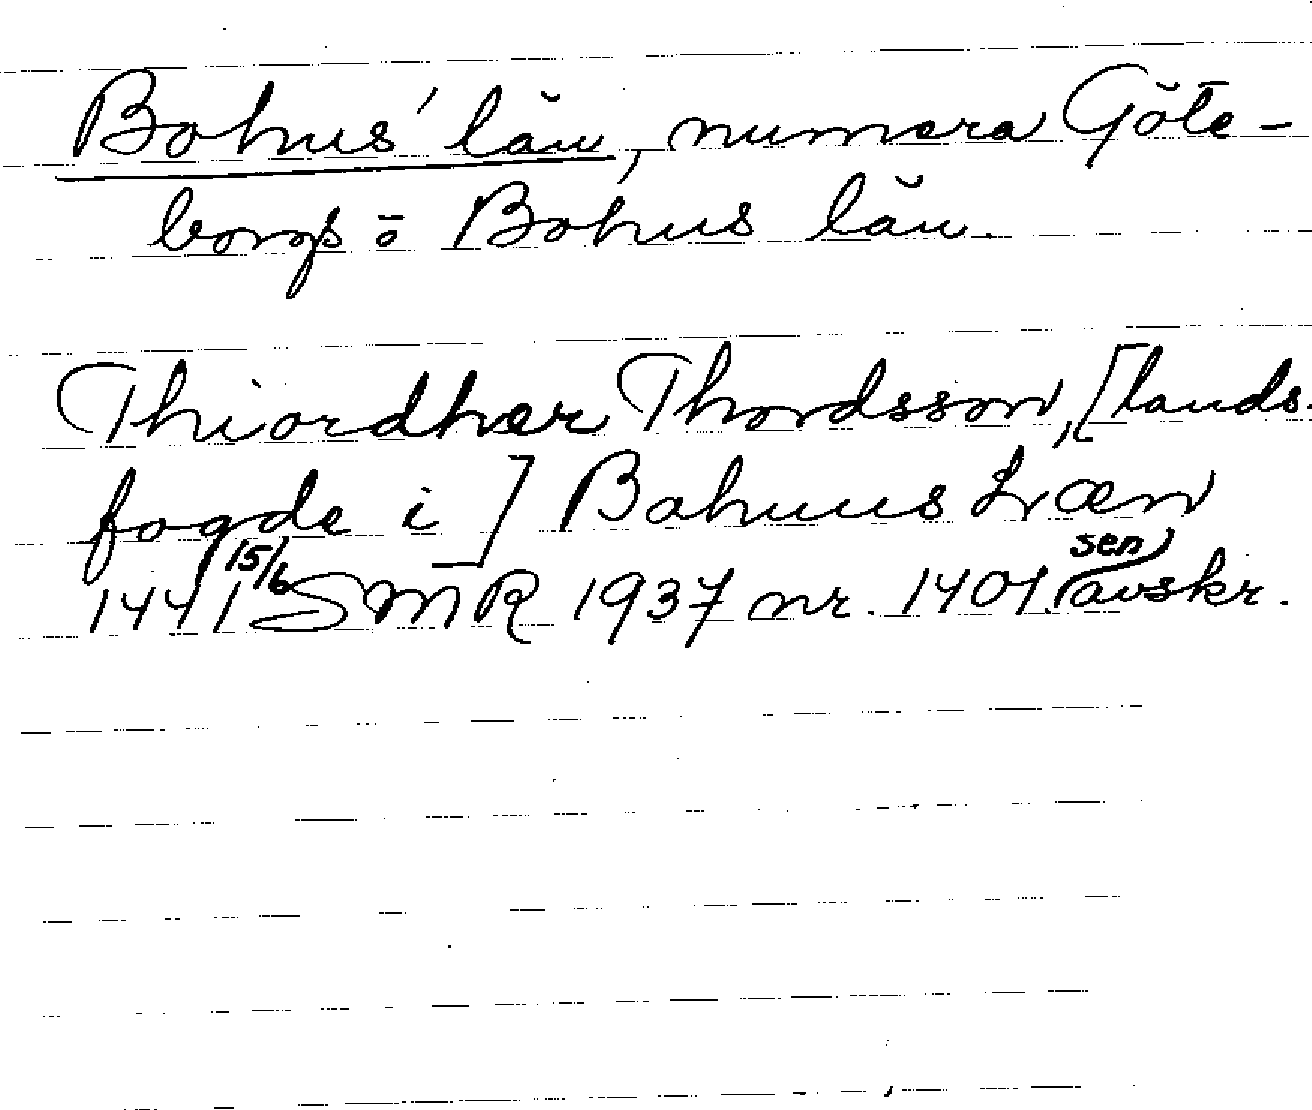 Bohus' län, numera Göte-
borgs o Bohus län.
Thiordher Thordsson, [lands.
fogde i] Bahuus Læn
1441 15/6 SMR 1937 nr. 1401. sen avskr.